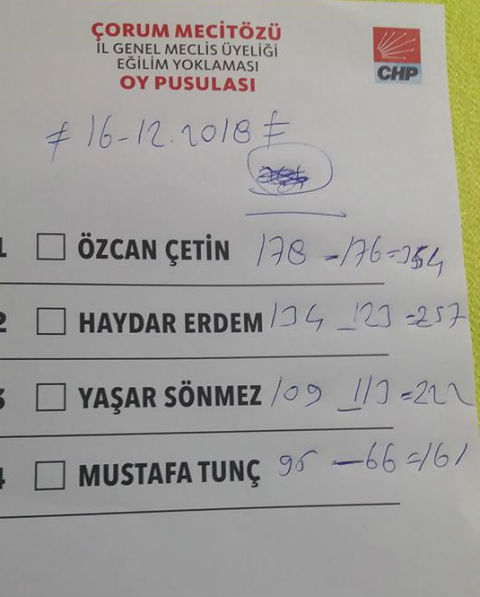 ÇORUM MECİTÖZÜ
İL GENEL MECLİS ÜYELİĞİ
EĞİLİM YOKLAMASI
OY PUSULASI
CHP
≠ 16-12.2018 ≠
1 ÖZCAN ÇETİN 178 - 176 = 354
2 HAYDAR ERDEM 134 - 123 = 257
3 YAŞAR SÖNMEZ 109 - 113 = 222
4 MUSTAFA TUNÇ 95 - 66 = 161